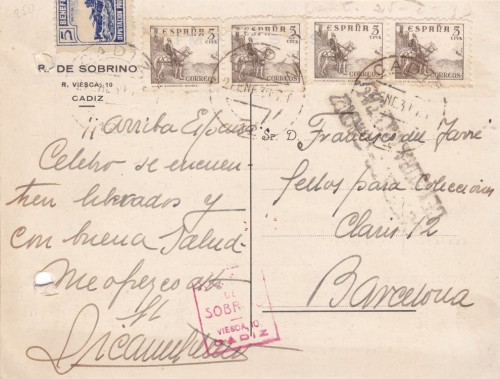 250
5
BENEF
ESPAÑA 5 CTVS
CORREOS
ESPAÑA 5 CTVS
CORREOS
ESPAÑA 5 CTVS
CORREOS
ESPAÑA 5 CTVS
CORREOS
R. DE SOBRINO
R. VIESCA, 10
CADIZ
¡¡Arriba España!
Celebro se encuen
tren liberados y
con buena Salud
Me ofrezco
Sr. D. Francisco del Tarré
Sellos para Colecciones
Claris 12
Barcelona
DE
SOBR
VIESCA, 10
CADIZ